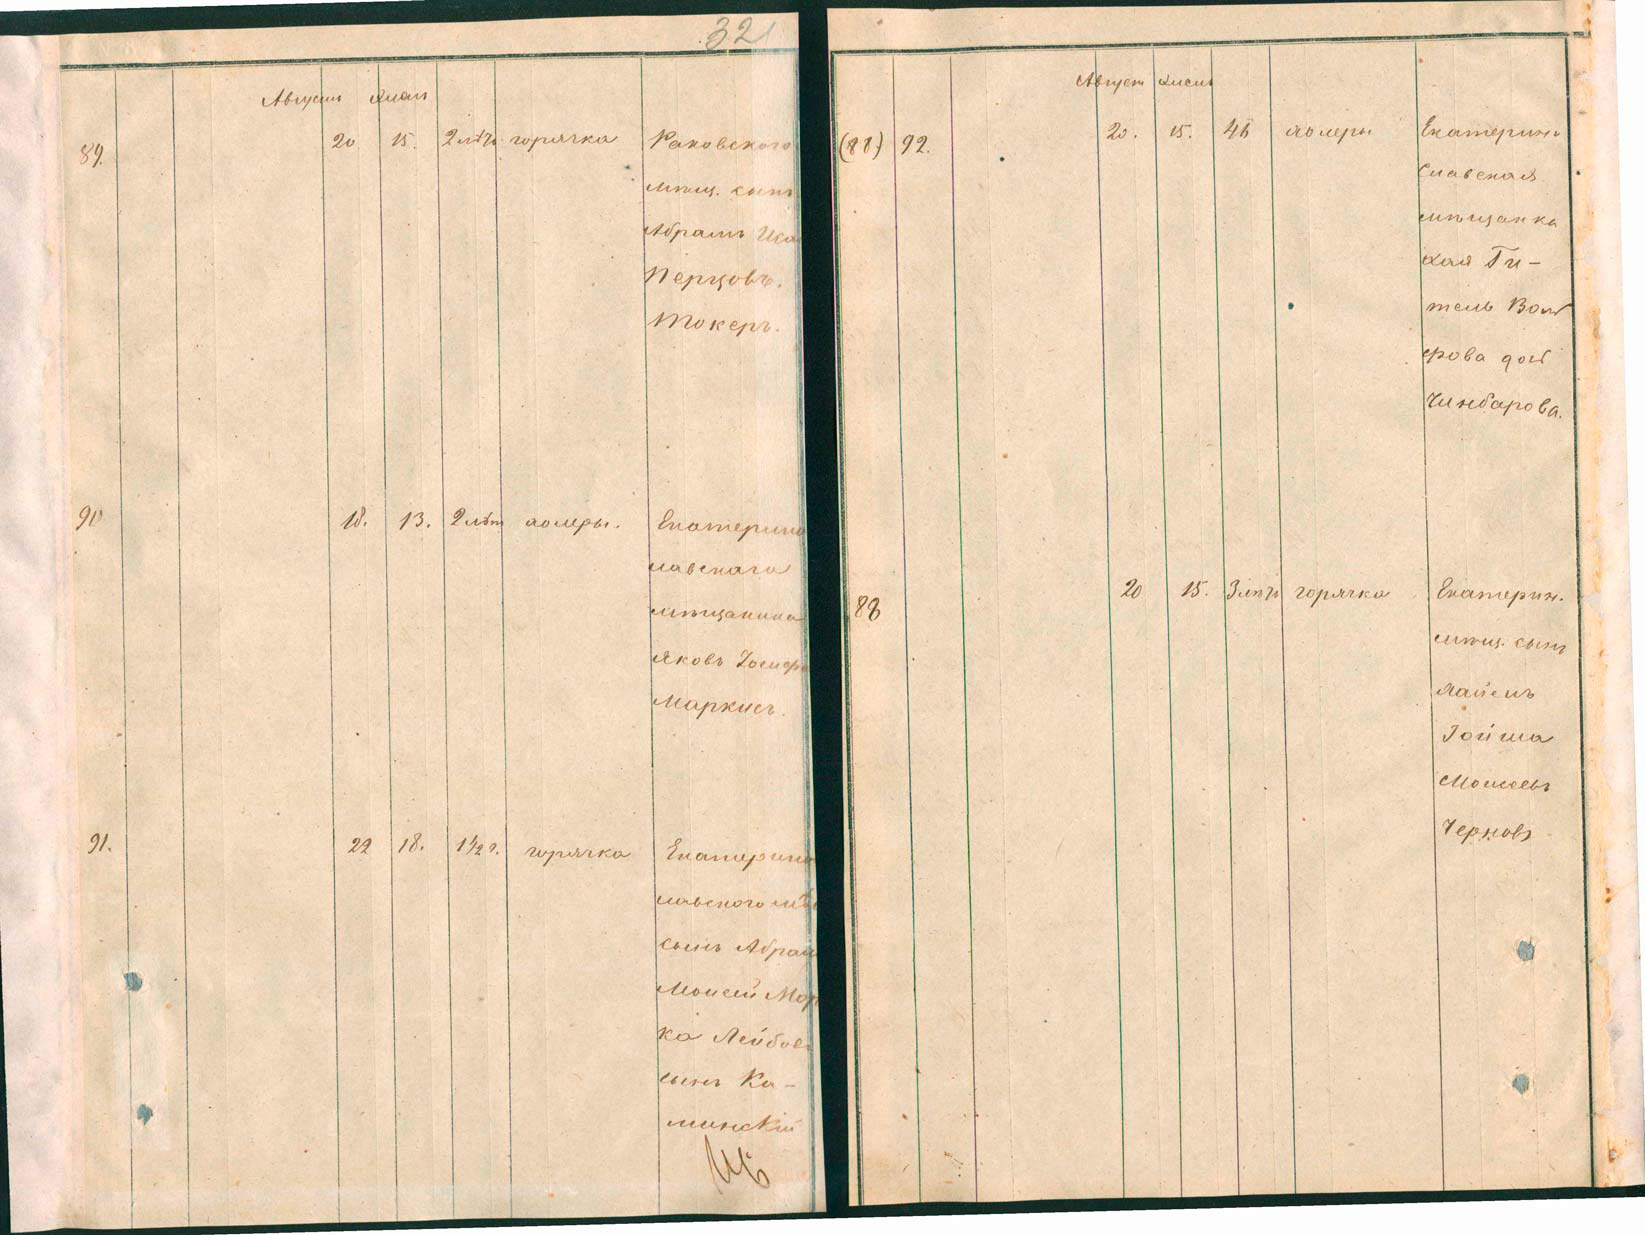 32
Августъ
89. 20 15. 2 лѣтъ горячка Раковскаго
мѣщ. сынъ
Абрамъ
Перцовъ.
Токеръ.
90 18. 13. 2 лѣт холеры. Екатерино
славскаго
мѣщанина
Яковъ
Маркисъ.
91. 22 18. 1 1/2 г. горячка Екатерино
славского
сынъ Абрам
Моисей Мор
ка Лейбовъ
сынъ Ка-
минскій
Август
(88) 92. 20. 15. 46 холеры Екатерино
славская
мѣщанка
Хая Ги-
тель Воль
фова
Чинбарова.
88 20 15. 3 лѣтъ горячка Екатерин.
мѣщ. сынъ
Моисеевъ